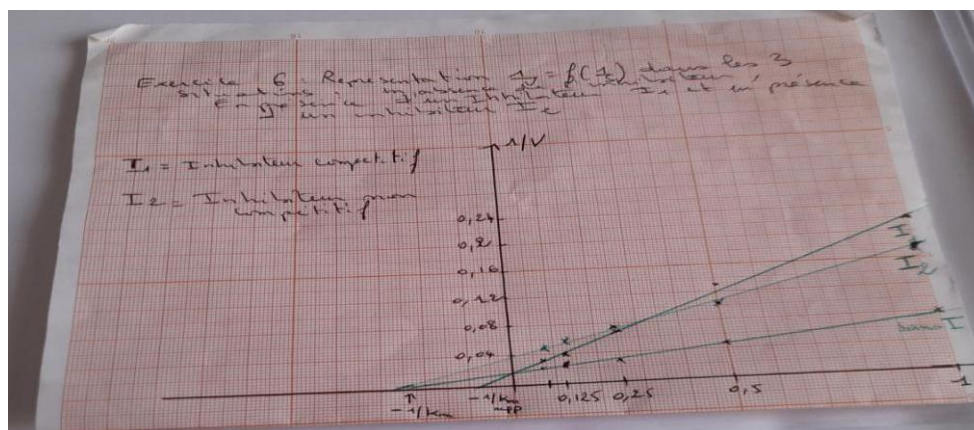 Exercice 6 : Représentation 1/V = f(1/S) dans les 3
situations : en absence d'inhibiteur,
En présence d'un Inhibiteur I1 et en présence
d'un inhibiteur I2
I1 = Inhibiteur compétitif
I2 = Inhibiteur non
compétitif
1/V
0,24
0,2
0,16
0,12
0,08
0,04
I1
I2
sans I
-1/km
-1/km
app
0,125
0,25
0,5
1